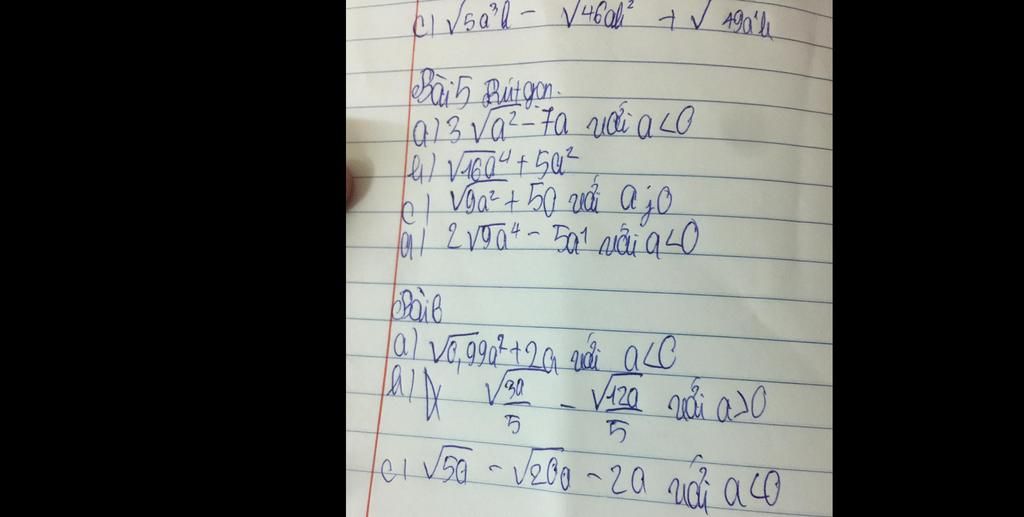 c) √5a³b - √46ab² + √49a²b
Bài 5 Rút gọn.
a) 3√a² - 7a với a<0
b) √16a⁴ + 5a²
c) √9a² + 50 với a ; 0
d) 2√9a⁴ - 5a¹ với a<0
Bài 6
a) √0,99a² + 2a với a<0
b) √3a/5 - √12a/5 với a>0
c) √5a - √20a - 2a với a<0